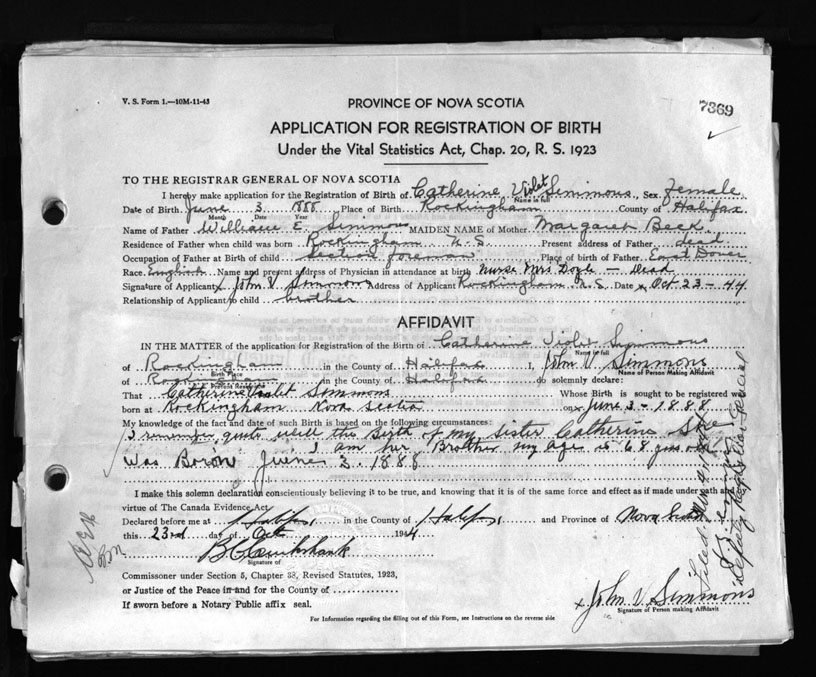 V. S. Form 1.—10M-11-43
PROVINCE OF NOVA SCOTIA
7369
APPLICATION FOR REGISTRATION OF BIRTH
Under the Vital Statistics Act, Chap. 20, R. S. 1923
TO THE REGISTRAR GENERAL OF NOVA SCOTIA
I hereby make application for the Registration of Birth of Catherine Violet Simmons, Sex Female
Name in full
Date of Birth June 3 1888 Place of Birth Rockingham County of Halifax
Month Date Year
Name of Father William E. Simmons MAIDEN NAME of Mother Margaret Beck
Residence of Father when child was born Rockingham N.S. Present address of Father dead
Occupation of Father at Birth of child Section foreman Place of birth of Father East Dover
Race English Name and present address of Physician in attendance at birth Nurse Mrs Doyle — Dead
Signature of Applicant x John V Simmons Address of Applicant Rockingham N.S. Date x Oct 23 - 44
Relationship of Applicant to child brother
AFFIDAVIT
IN THE MATTER of the application for Registration of the Birth of Catherine Violet Simmons
Name in full
of Rockingham in the County of Halifax I, John V. Simmons
Birth Place Name of Person Making Affidavit
of Rockingham in the County of Halifax do solemnly declare:
Present Residence
That Catherine Violet Simmons Whose Birth is sought to be registered was
born at Rockingham Nova Scotia on x June 3 - 1888
My knowledge of the fact and date of such Birth is based on the following circumstances:
I remember quite well the Birth of my sister Catherine She
was Born June 3. 1888 I am her Brother my age is 68 yrs old
I make this solemn declaration conscientiously believing it to be true, and knowing that it is of the same force and effect as if made under oath and
virtue of The Canada Evidence Act.
Declared before me at Halifax, in the County of Halifax, and Province of Nova Scotia
this 23rd day of Oct 1944
Signature of
Commissoner under Section 5, Chapter 38, Revised Statutes, 1923,
or Justice of the Peace in and for the County of
If sworn before a Notary Public affix seal.
x John V Simmons
Signature of Person making Affidavit
For Information regarding the filling out of this Form, see Instructions on the reverse side
Deputy Registrar General